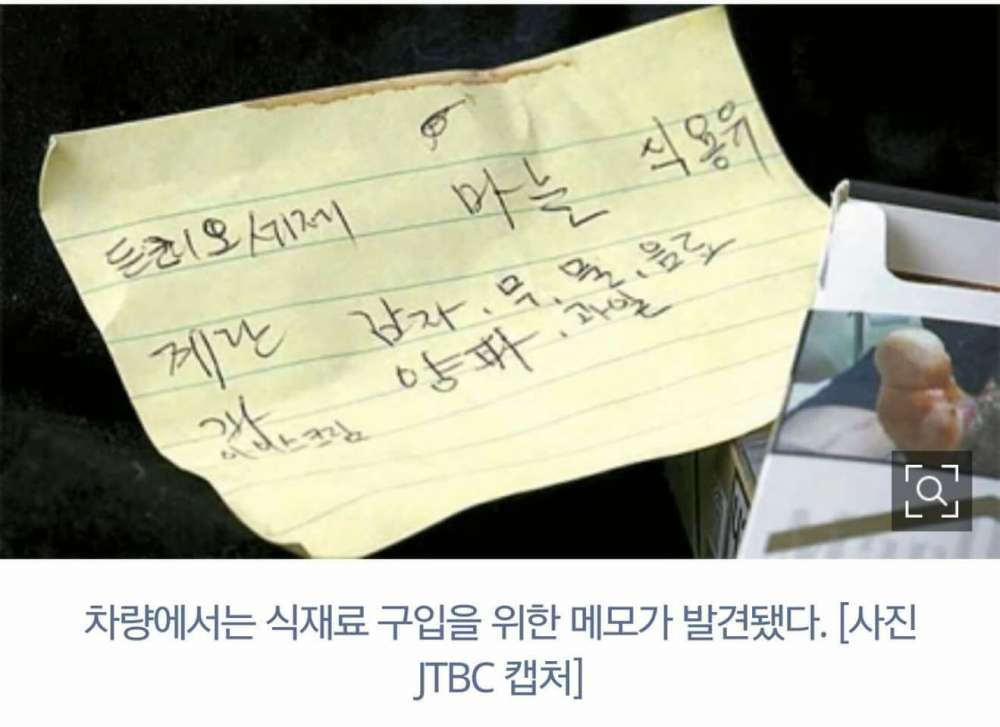 마늘 식용유
트리오세제
감자 . 무 . 물 . 음료
계란 양파 . 과일
아이스크림
차량에서는 식재료 구입을 위한 메모가 발견됐다. [사진
JTBC 캡처]